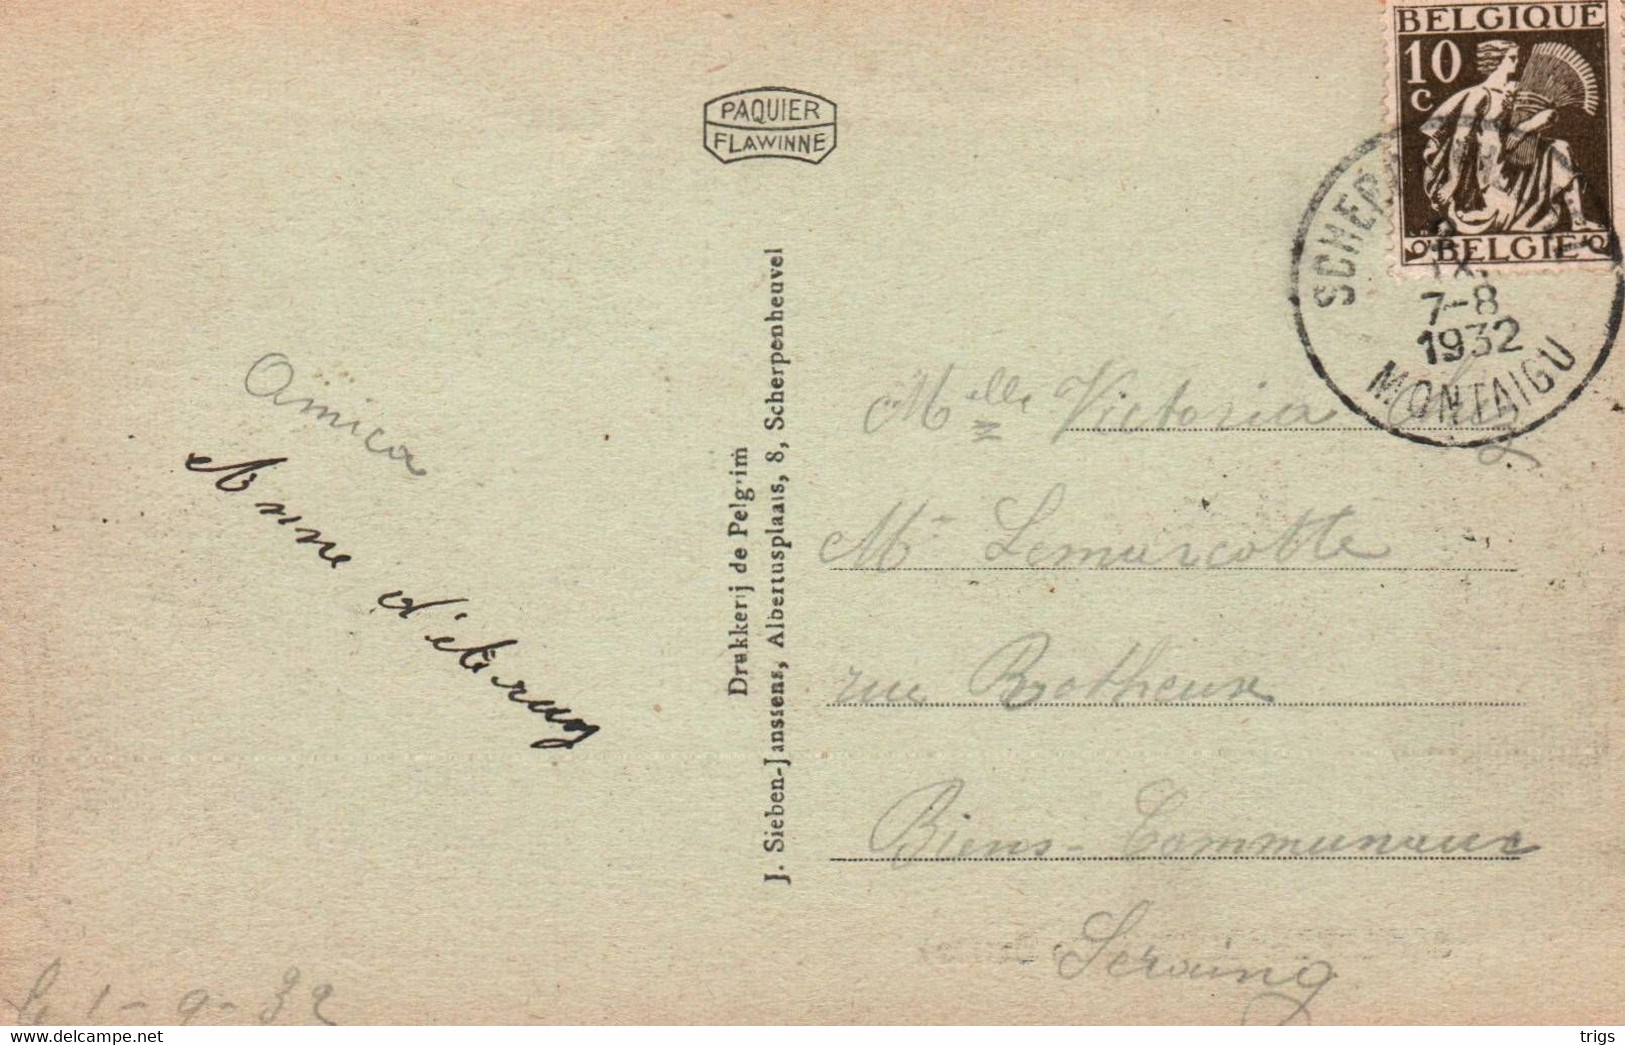 BELGIQUE
10
C
BELGIE
PAQUIER
FLAWINNE
IX.
7-8
1932
MONTAIGU
Drukkerij de Pelgrim
J. Sieben-Janssens, Albertusplaats, 8, Scherpenheuvel
Amica
Anne
Melle Victoria
Mr Lemarcotte
rue Botheux
Biens-Communaux
Seraing
1-9-32
delcampe.net
trigs